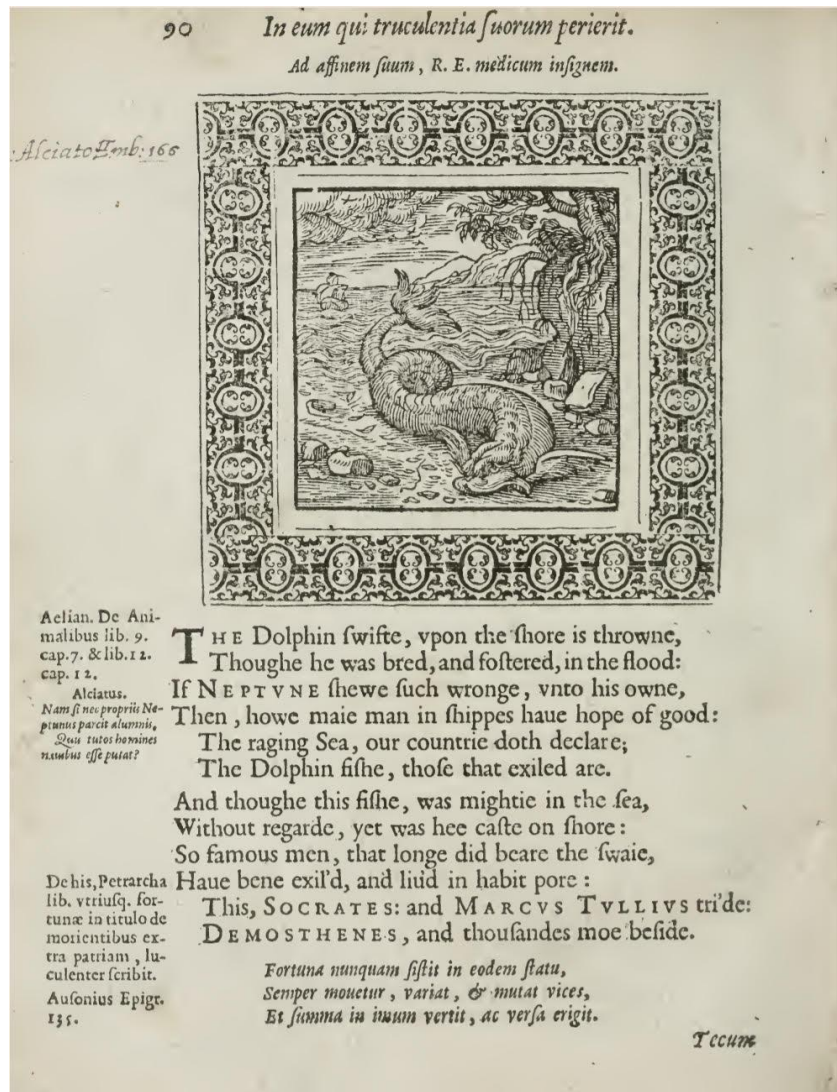 90 In eum qui truculentia ſuorum perierit.
Ad affinem ſuum, R. E. medicum inſignem.
Alciato Emb: 166
Aelian. De Ani-
malibus lib. 9.
cap. 7. & lib. 12.
cap. 12.
Alciatus.
Nam ſi nec propriis Ne-
ptunus parcit alumnis,
Quu tutos homines
nauibus eſſe putat?
THE Dolphin ſwifte, vpon the ſhore is throwne,
Thoughe he was bred, and foſtered, in the flood:
If NEPTVNE ſhewe ſuch wronge, vnto his owne,
Then, howe maie man in ſhippes haue hope of good:
The raging Sea, our countrie doth declare;
The Dolphin fiſhe, thoſe that exiled are.
And thoughe this fiſhe, was mightie in the ſea,
Without regarde, yet was hee caſte on ſhore:
So famous men, that longe did beare the ſwaie,
Haue bene exil'd, and liu'd in habit pore:
This, SOCRATES: and MARCVS TVLLIVS tri'de:
DEMOSTHENES, and thouſandes moe beſide.
De his, Petrarcha
lib. vtriuſq. for-
tunæ in titulo de
morientibus ex-
tra patriam, lu-
culenter ſcribit.
Auſonius Epigr.
135.
Fortuna nunquam ſiſtit in eodem ſtatu,
Semper mouetur, variat, & mutat vices,
Et ſumma in imum vertit, ac verſa erigit.
Tecum